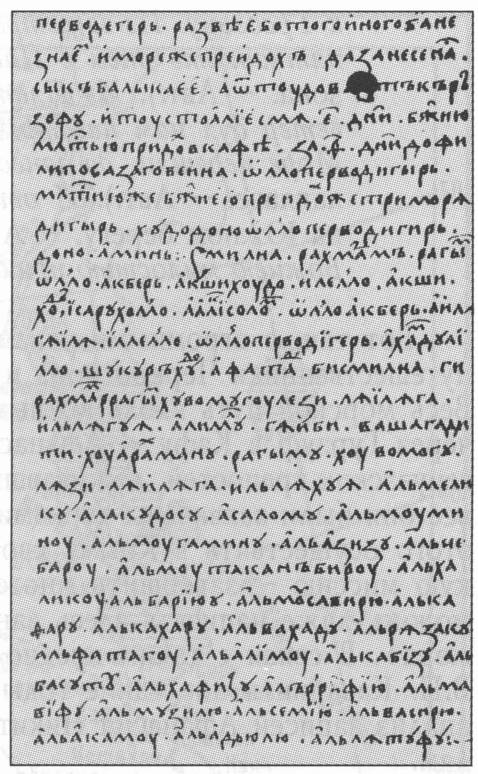 перводегерь · развѣе́ботого́иногобане
знаеⷮ · и҆мореж҆епреи҆дохъ · дазанесенаⷭ҇ ·
сыкъбалыкае́е́ · аѿтоудова тъкъръ
зофу · и҆тоустоꙗ́лїе́смѧ · е҃ · дн҃и · бж҃ию
млⷭ҇тьюпридоⷯвкафѣ · за · ѳ҃ · дн҃и дофи
липовазаговеина · ѿллоперводигирь ·
млⷭ҇тиюжебж҃иеюпреидоⷯжетриморѧ
дигырь · худодоноѿллоперводигирь ·
доно · аминь: смилна · рахмаⷨмъ · рагыⷨ
ѿлло · акберь · акшихоудо · илелло · акши ·
ходо · їсарухолло · аалїсолоⷨ · ѿлло акберь · аила
гѧилѧ · їллелло · ѿллоперводїгерь · ахаⷨдулї
лло · шукурьхуⷣ · афатаⷣ · бисмилна · ги
рахмаⷨррагыⷨ хувомугоулези · лѧилѧга ·
ильлѧгуѧ · алимуⷩ · гѧиби · вашагади
ти · хоуараⷯману · рагыму · хоувомогу ·
лѧзи · лѧилѧга · ильлѧхуѧ · альмели
ку · алакудосу · асалому · альмоуми
ноу · альмоугамину · альазизу · альче
бароу · альмоутаканъбироу · альха
ликоу · альбарїюу · альмоⷭсавирю · алька
фару · алькахару · альвахаду · альрѧзаку
альфатагоу · альалїмоу · алькабїзу · аль
басуту · альхафизу · алърръфїю · альма
вїфу · альмузилю · альсемїю · альвасирю ·
альакамоу · альадьюлю · альлѧтуфу:-